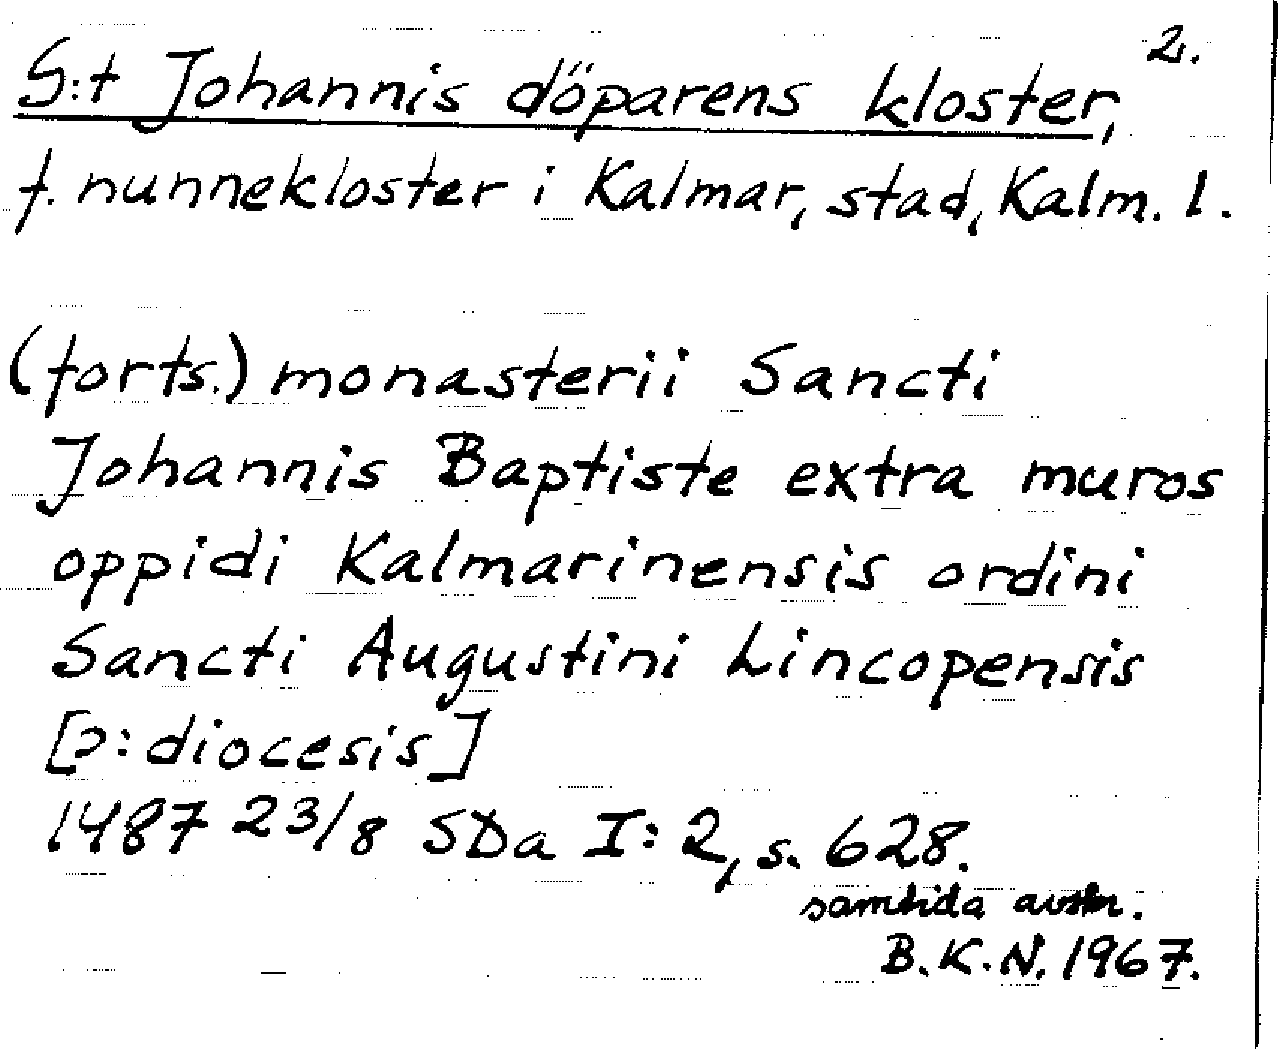 2.
S:t Johannis döparens kloster,
f. nunnekloster i Kalmar, stad, Kalm. l.
(forts.) monasterii Sancti
Johannis Baptiste extra muros
oppidi Kalmarinensis ordini
Sancti Augustini Lincopensis
[ɔ: diocesis]
1487 23/8 SDa I: 2, s. 628.
samtida avskr.
B.K.N. 1967.